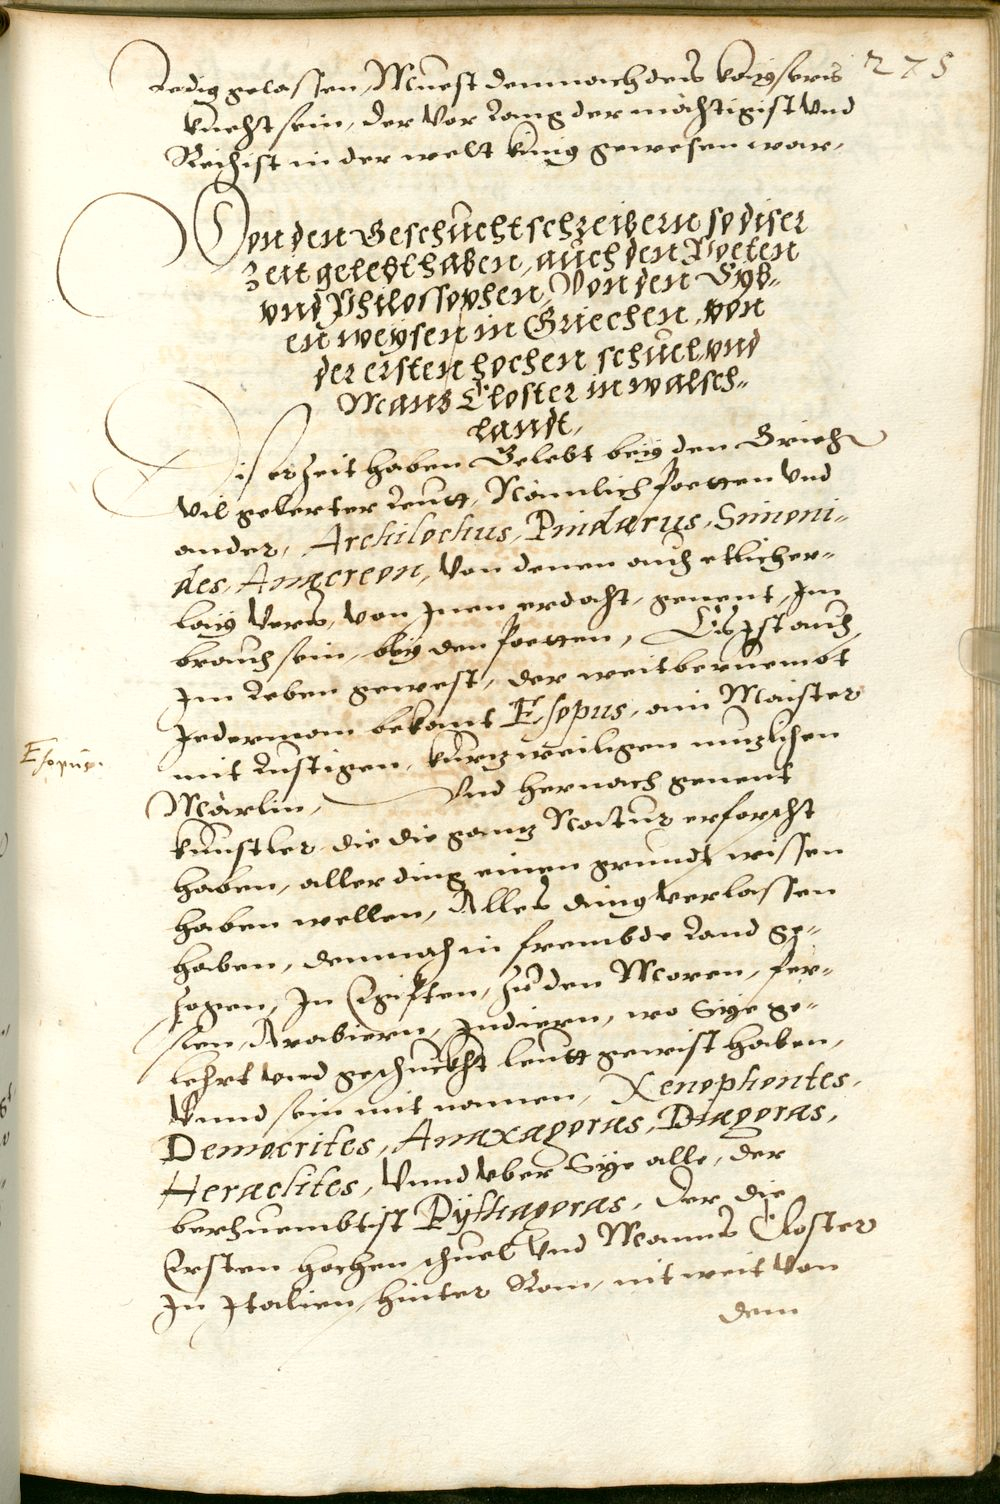 275
Ledig gelassen, Muest demnach deis kaysers
knecht sein, der vor Lang der mächtigist vnd
Reichist in der welt kinig gewesen war,
Von den Geschichtschreibern so diser
Zeit gelebt haben, auch den Poeten
vnd Philossophen, Von den Syb-
en weysen in Griechen, von
der ersten hochen schuel vnd
Mans Closter in walsch-
landt,
Diser zeit haben Gelebt bey den Griech
vil gelerter leutt, Nämlich Poetten vnd
ander, Archilochus, Pindarus, Simoni-
des, Anacreon, Von denen auch etlicher-
lay Vers, von Inen erdacht, genent, Im
brauch sein, bey den Poetten, Es ist auch
Im Leben gewest, der weitberuembt
Jederman bekant Esopus, ain Maister
mit Lustigen, kurzweiligen nuzlichen
Esopus.
Märlin, Vnd hernach genent
kunstler die die ganz Natur erforscht
haben, aller ding einen grundt wissen
haben wellen, Alles ding verlassen
haben, demnach in frembde Land ge-
zogen, In Egipten, zu den Moren, Per-
sien, Arabiern, Indiern, wo Sye ge-
lehrt vnd geschickht leutt gewist haben,
Vnnd sein mit namen, Xenophontes,
Democrites, Anaxagoras, Diagoras,
Heraclites, Vnnd vber Sye alle, der
berhuembtist Pythagoras, der die
Ersten hochen schuel vnd Manns Closter
In Italien, hinter Rom, nit weit von
dem